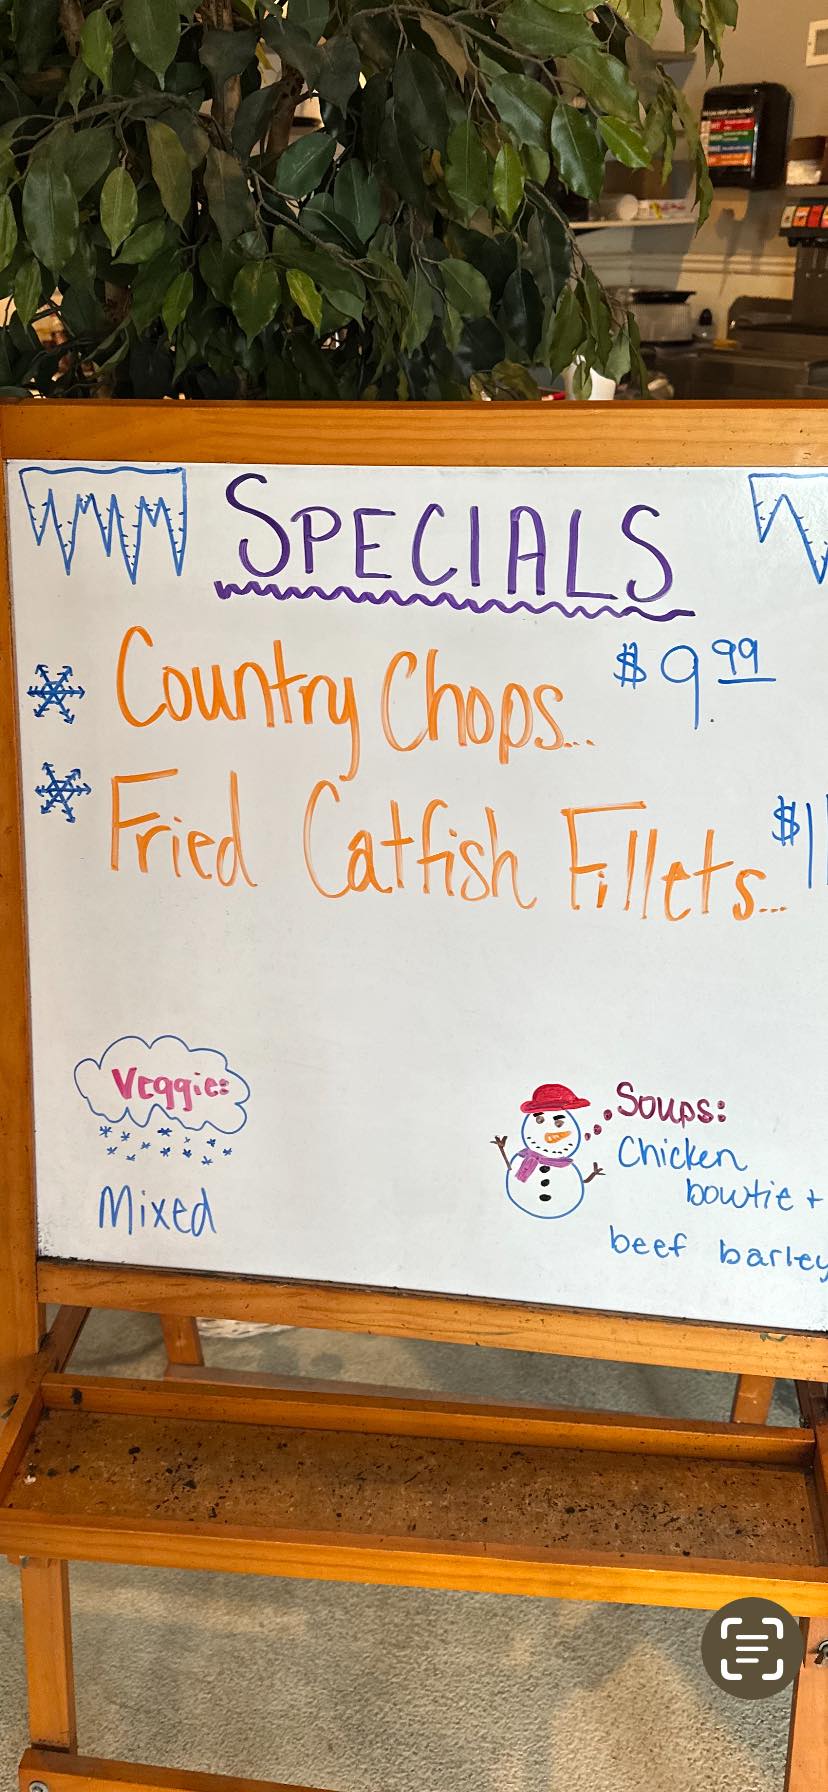 SPECIALS
Country Chops... $9.99
Fried Catfish Fillets... $1
Veggie:
Mixed
Soups:
Chicken
bowtie +
beef barley